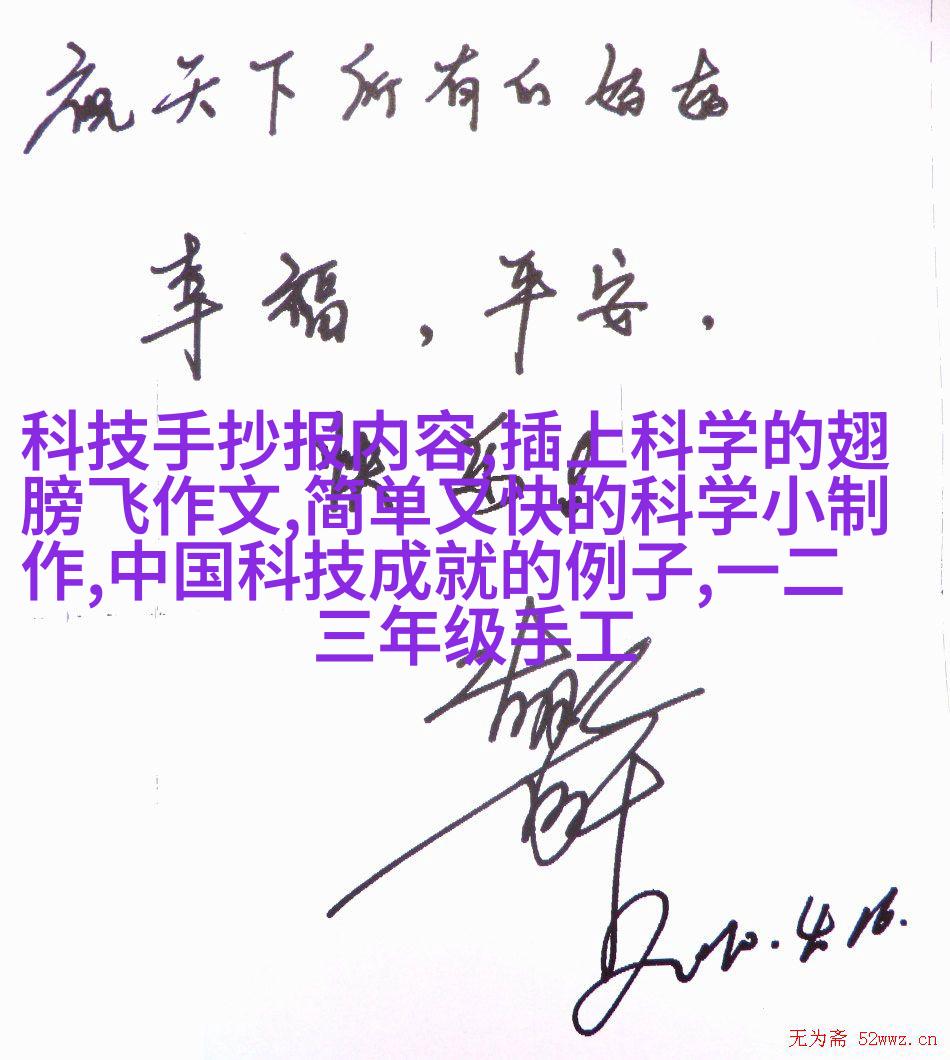 祝天下所有的妈妈
幸福，平安，
快乐！
科技手抄报内容,插上科学的翅
膀飞作文,简单又快的科学小制
作,中国科技成就的例子,一二
三年级手工
2010.4.16.
无为斋 52wwz.cn